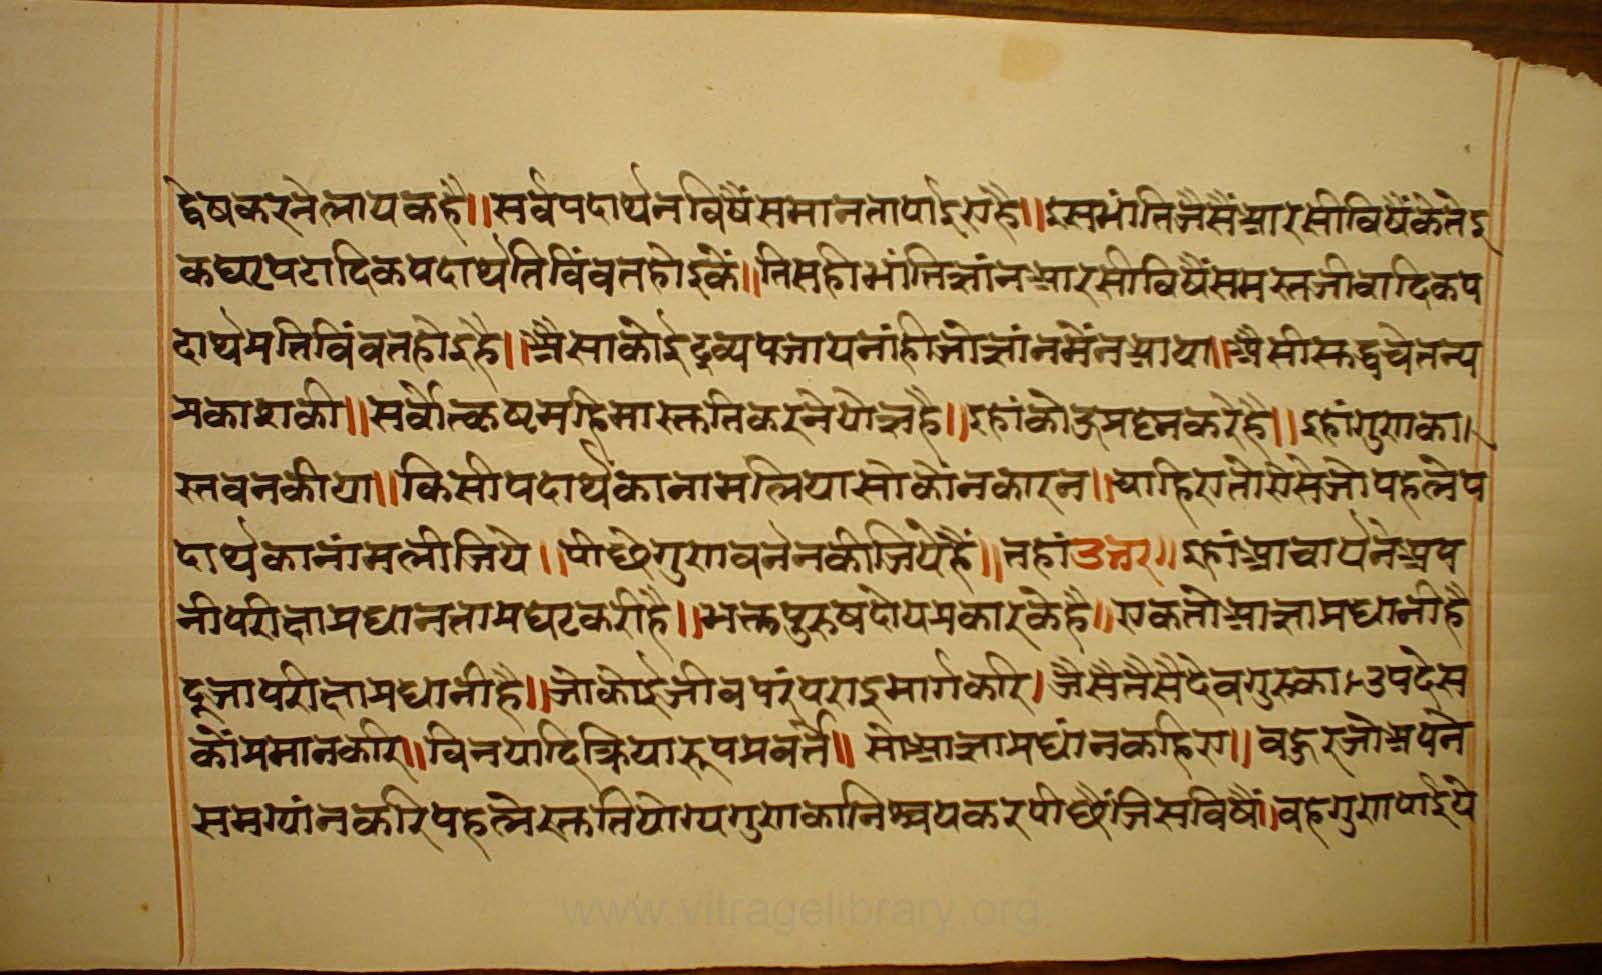 द्वेषकरनेलायकहै॥सर्वपदार्थनविषैंसमानतापाईएहै॥इसभांतिजैसैंआरसीविषैंकेतेइ
कघटपटादिकपदार्थतिविंवतहोइकें॥तिसहीभांतिज्ञांनआरसीविषैंसमस्तजीवादिकप
दार्थप्रतिविंवतहोइहै॥अैसाकोईद्रव्यपजायनांहीजोज्ञांनमेंनआया॥अैसीसुद्धचेतन्य
प्रकाशकी॥सर्वोत्कृष्टमहिमास्तुतिकरनेयोज्ञहै॥इहांकोउप्रष्नकरेहै॥इहांगुणका।
स्तवनकीया॥किसीपदार्थकानामलियासोकोंनकारन॥चाहिएतोऐसेजोपहलेप
दार्थकानांमलीजिये॥पीछेगुणवर्ननकीजियेहैं॥तहांउत्तर॥इहांआचार्यनेअप
नीपरीक्षाप्रधानताप्रघटकरीहै॥भक्तपुरुषदोयप्रकारकेहै॥एकतोआज्ञाप्रधानीहै
दूजापरीक्षाप्रधानीहै॥जोकोईजीवपरंपराइमार्गकरि।जैसैतैसैदेवगुरुका।उपदेस
कोंप्रमानकरि॥विनयादिक्रियारूपप्रवर्तै॥सोआज्ञाप्रधांनकहिए॥वहुरजोअपने
समग्यांनकरिपहलेस्तुतियोग्यगुणकानिश्चयकरपीछैंजिसविषैं॥वहगुणपाईये
www.vitragelibrary.org